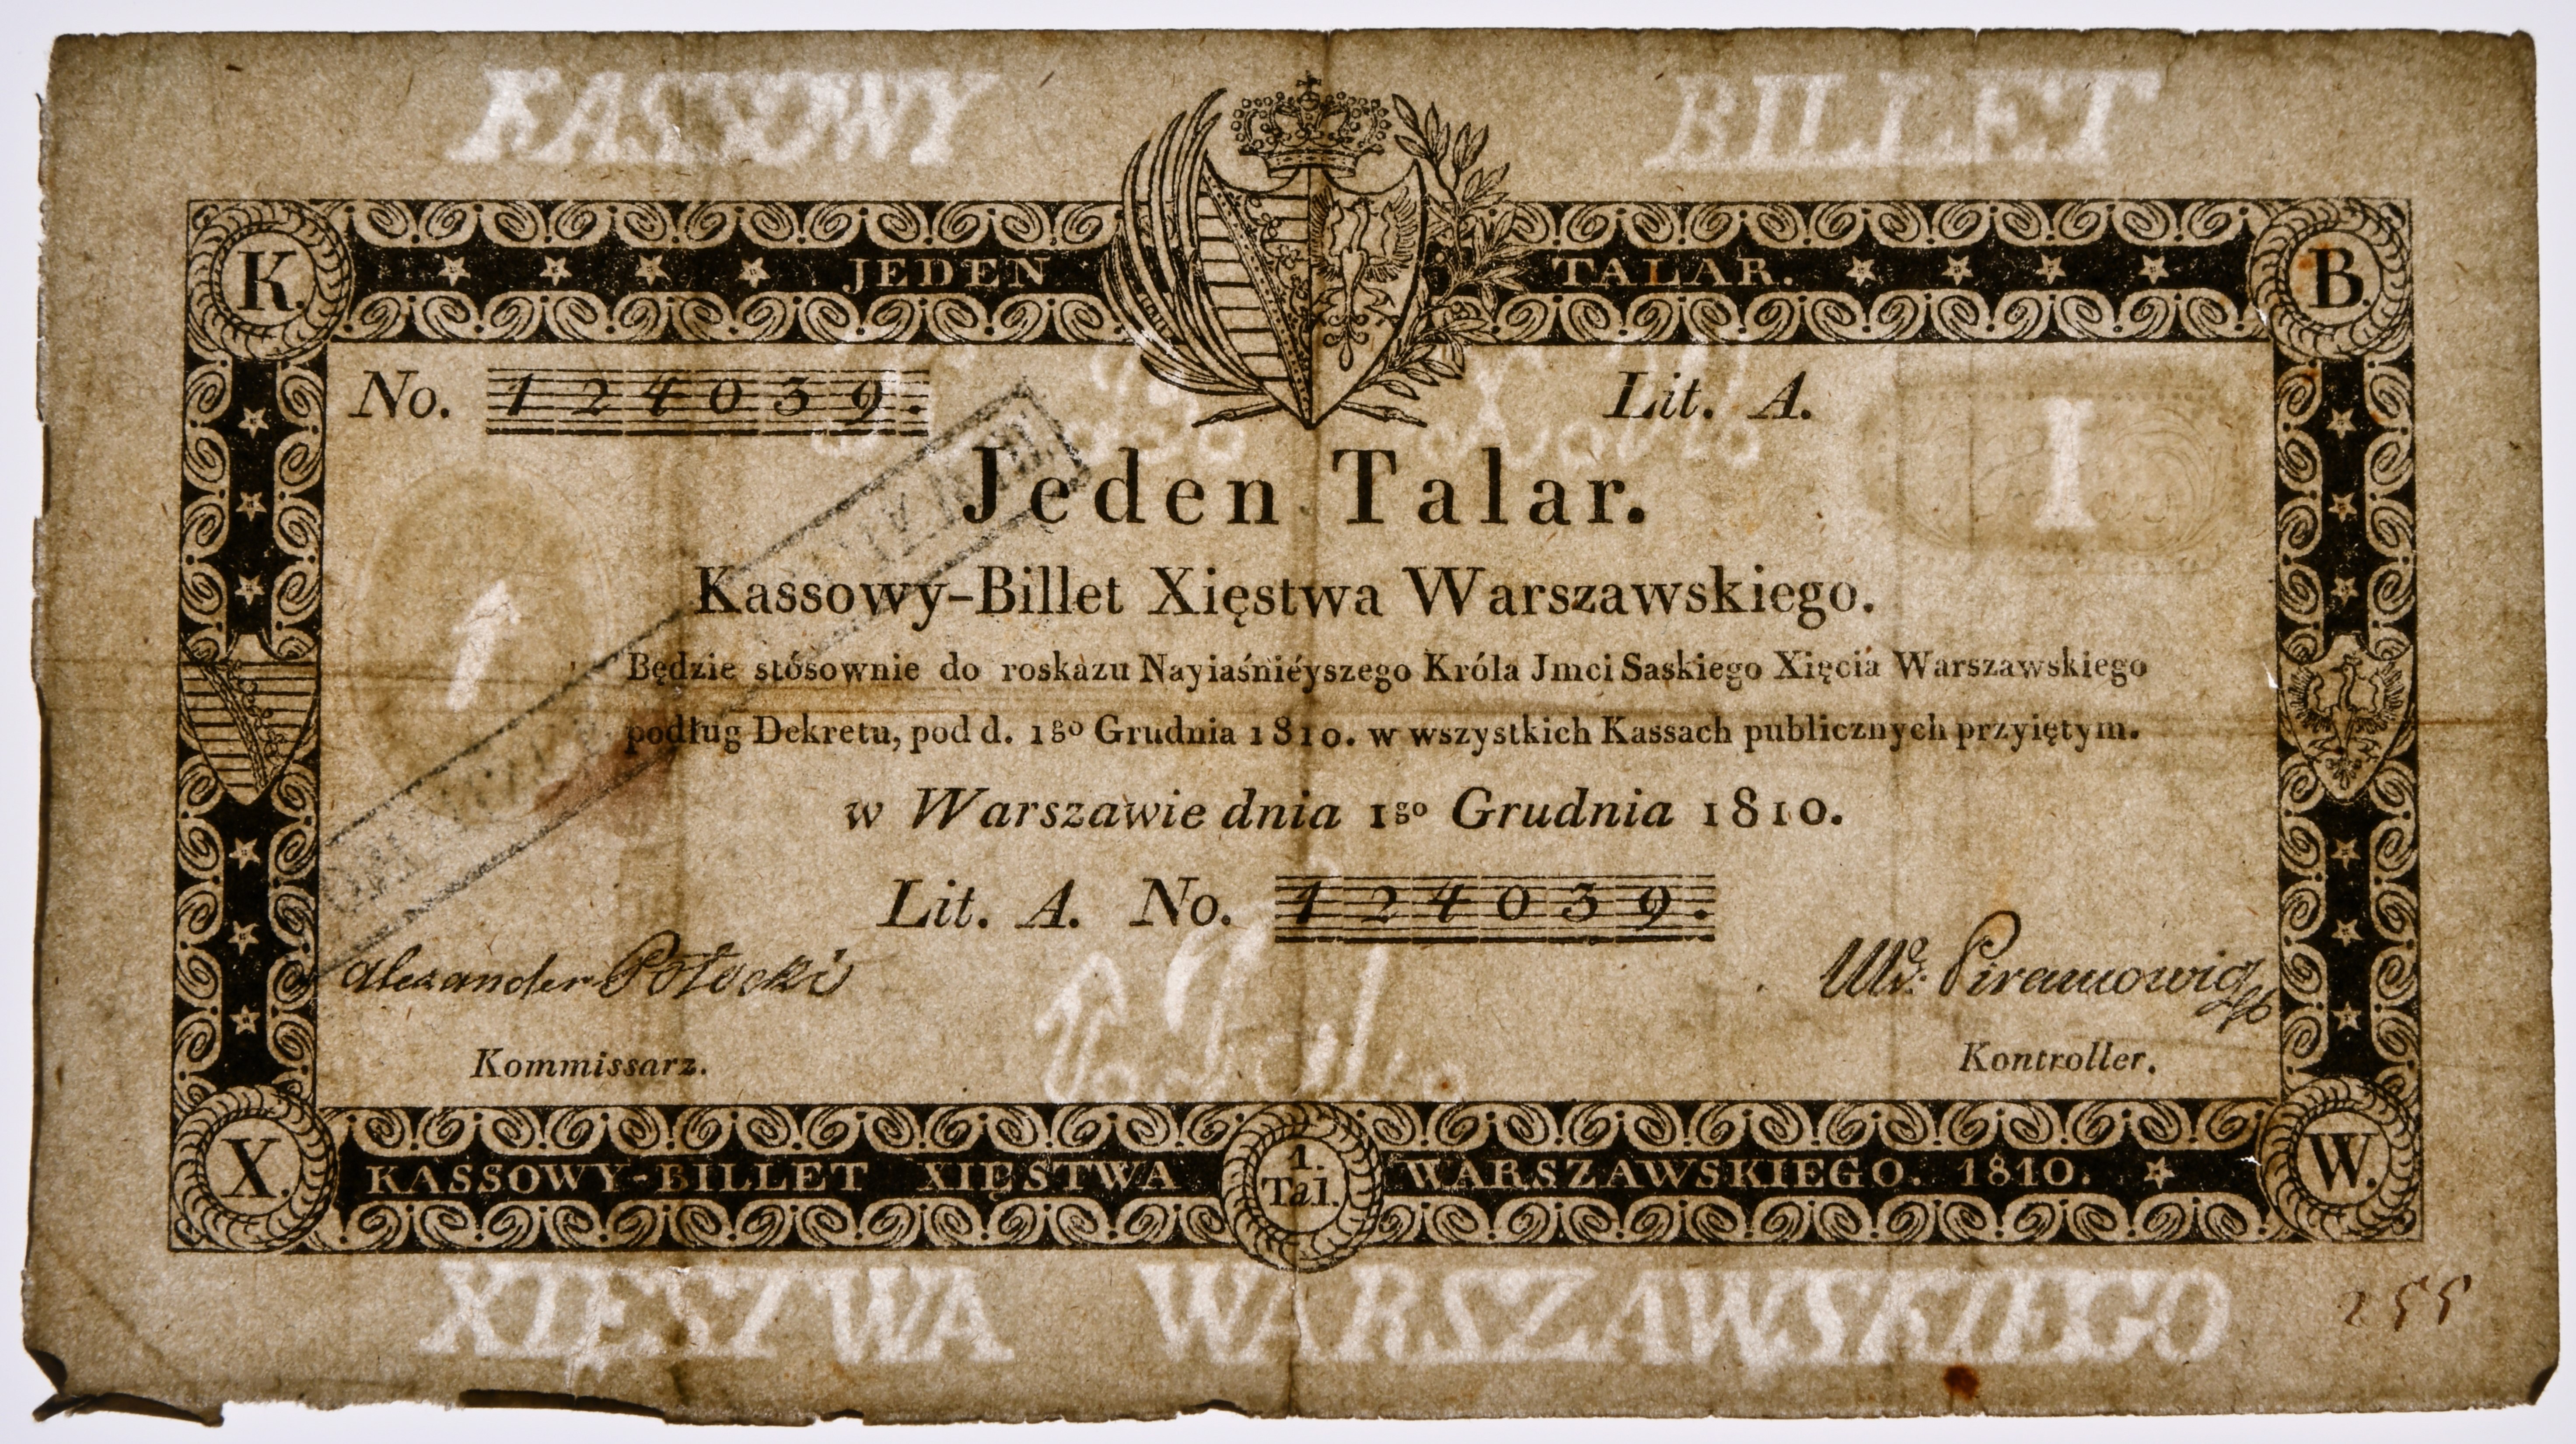 KASSOWY BILLET
K. JEDEN TALAR. B.
No. 124039. Lit. A.
I
Jeden Talar.
1
Kassowy-Billet Xięstwa Warszawskiego.
Będzie stósownie do roskazu Nayiaśniéyszego Króla Jmci Saskiego Xięcia Warszawskiego
podług Dekretu, pod d. 1go Grudnia 1810. w wszystkich Kassach publicznych przyiętym.
w Warszawie dnia 1go Grudnia 1810.
Lit. A. No. 124039.
Alexander Potocki
Kommissarz. Kontroller.
X. KASSOWY-BILLET XIĘSTWA 1. Tal. WARSZAWSKIEGO. 1810. W.
XIĘSTWA WARSZAWSKIEGO
255